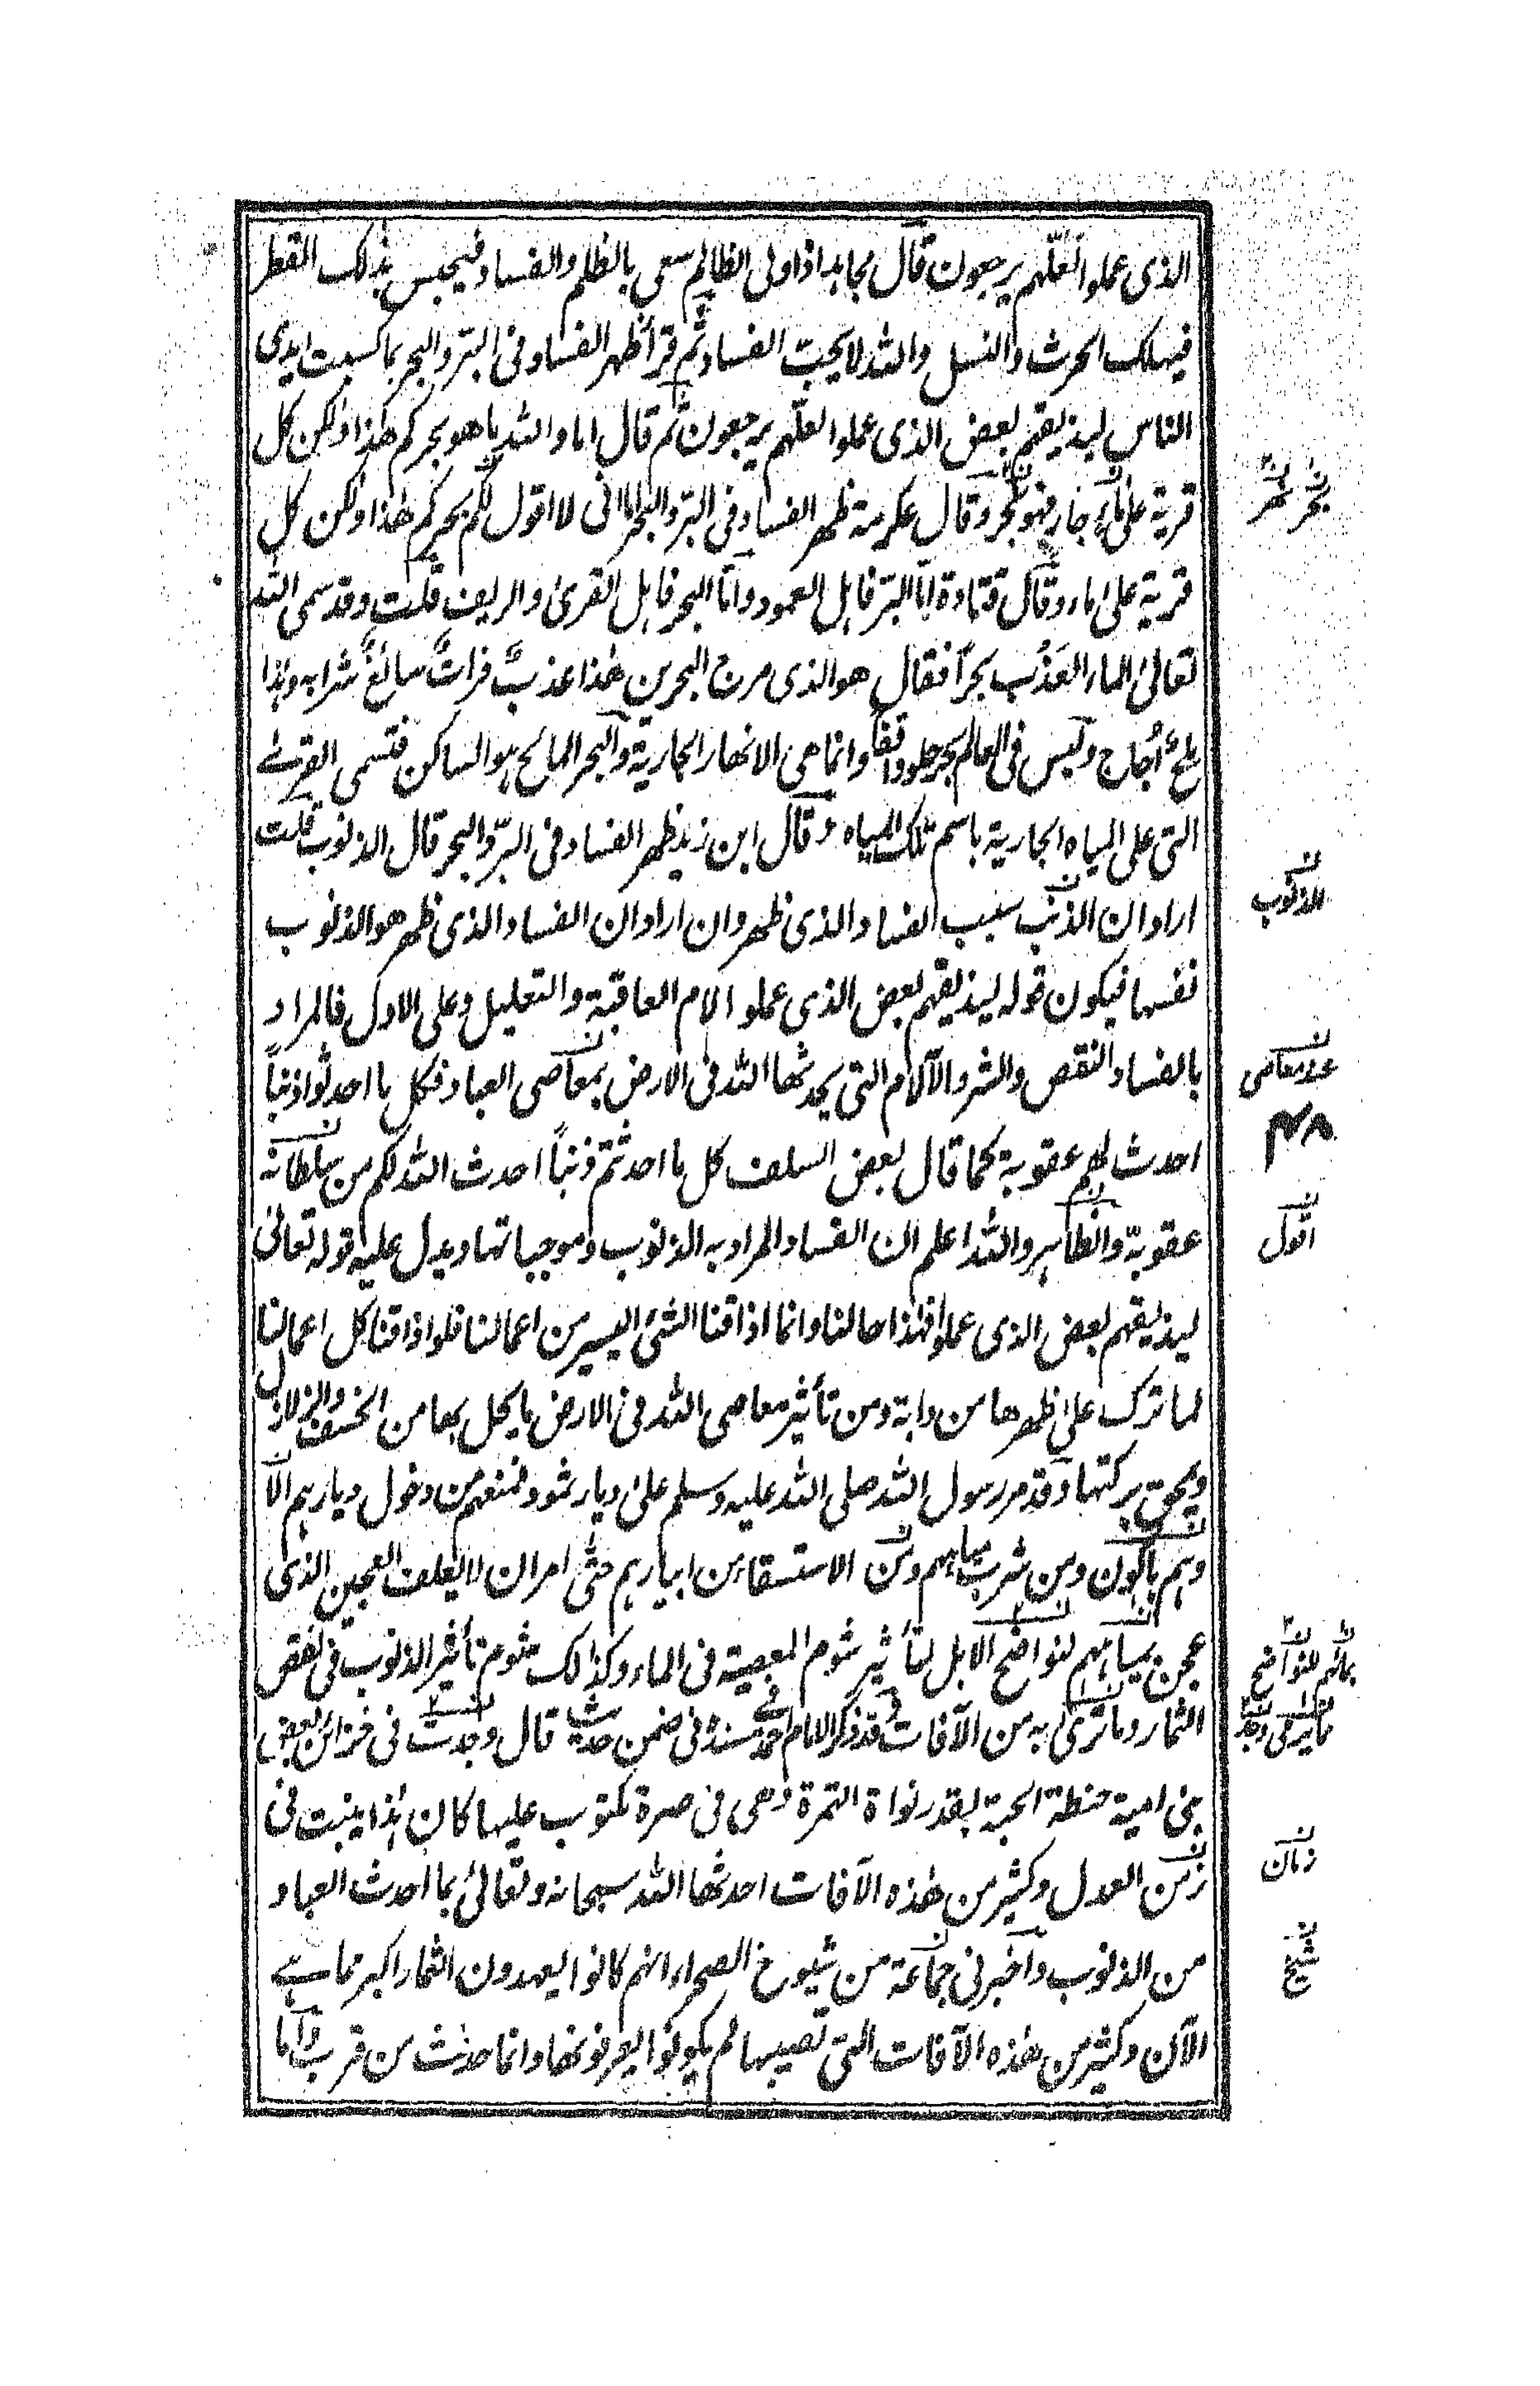 الذى عملوا لعلهم يرجعون قال مجاهد اذا ولى الظالم سعى بالظلم والفساد فيحبس بذلك القطر
فيهلك الحرث والنسل والله لا يحب الفساد ثم قرأ ظهر الفساد فى البر والبحر بما كسبت ايدى
الناس ليذيقهم بعض الذى عملوا لعلهم يرجعون ثم قال اما والله ما هو بحركم هذا ولكن كل
قرية على ماء جار فهو بحر وقال عكرمة ظهر الفساد فى البر والبحر اما انى لا اقول لكم بحركم هذا ولكن كل
قرية على ماء وقال قتادة اما البر فاهل العمود واما البحر فاهل القرى والريف قلت وقد سمى الله
تعالى الماء العذب بحرا فقال هو الذى مرج البحرين هذا عذب فرات سائغ شرابه وهذا
ملح أجاج وليس فى العالم بحر حلو واقفا وانما هى الانهار الجارية والبحر المالح هو الساكن فتسمى القرى
التى على المياه الجارية باسم تلك المياه وقال ابن زيد ظهر الفساد فى البر والبحر قال الذنوب قلت
اراد ان الذنب سبب الفساد الذى ظهر وان اراد ان الفساد الذى ظهر هو الذنوب
نفسها فيكون قوله ليذيقهم بعض الذى عملوا لام العاقبة والتعليل وعلى الاول فالمراد
بالفساد النقص والشر والآلام التى يحدثها الله فى الارض بمعاصى العباد فكل ما احدثوا ذنباً
احدث لهم عقوبة كما قال بعض السلف كل ما احدثتم ذنباً احدث الله لكم من سلطانه
عقوبة والظاهر والله اعلم ان الفساد المراد به الذنوب وموجباتها ويدل عليه قوله تعالى
ليذيقهم بعض الذى عملوا فهذا حالنا وانما اذاقنا الشئ اليسير من اعمالنا فلو اذاقنا كل اعمالنا
لما ترك على ظهرها من دابة ومن تأثير معاصى الله فى الارض ما يحل بها من الخسف والزلازل
ويمحق بركتها وقد مر رسول الله صلى الله عليه وسلم على ديار ثمود فمنعهم من دخول ديارهم الا
وهم باكون ومن شرب مياههم ومن الاستسقاء من ابيارهم حتى امر ان لا يعلف العجين الذى
عجن بمياههم لنواضح الابل لتأثير شوم المعصية فى الماء وكذالك شوم تأثير الذنوب فى نقص
الثمار وما ترى به من الآفات وقد ذكر الامام احمد فى مسنده فى ضمن حديث قال وجدت فى خزائن بعض
بنى امية حنطة الحبة بقدر نواة التمرة وهى فى صرة مكتوب عليها كان هذا ينبت فى
زمن العدل وكثير من هذه الآفات احدثها الله سبحانه وتعالى بما احدث العباد
من الذنوب واخبرنى جماعة من شيوخ الصحراء انهم كانوا يعهدون الثمار اكبر مما هى
الآن وكثير من هذه الآفات التى تصيبها لم يكونوا يعرفونها وانما حدثت من قرب واما
للذنوب
عند معاصى
اقول
زمان
شيخ